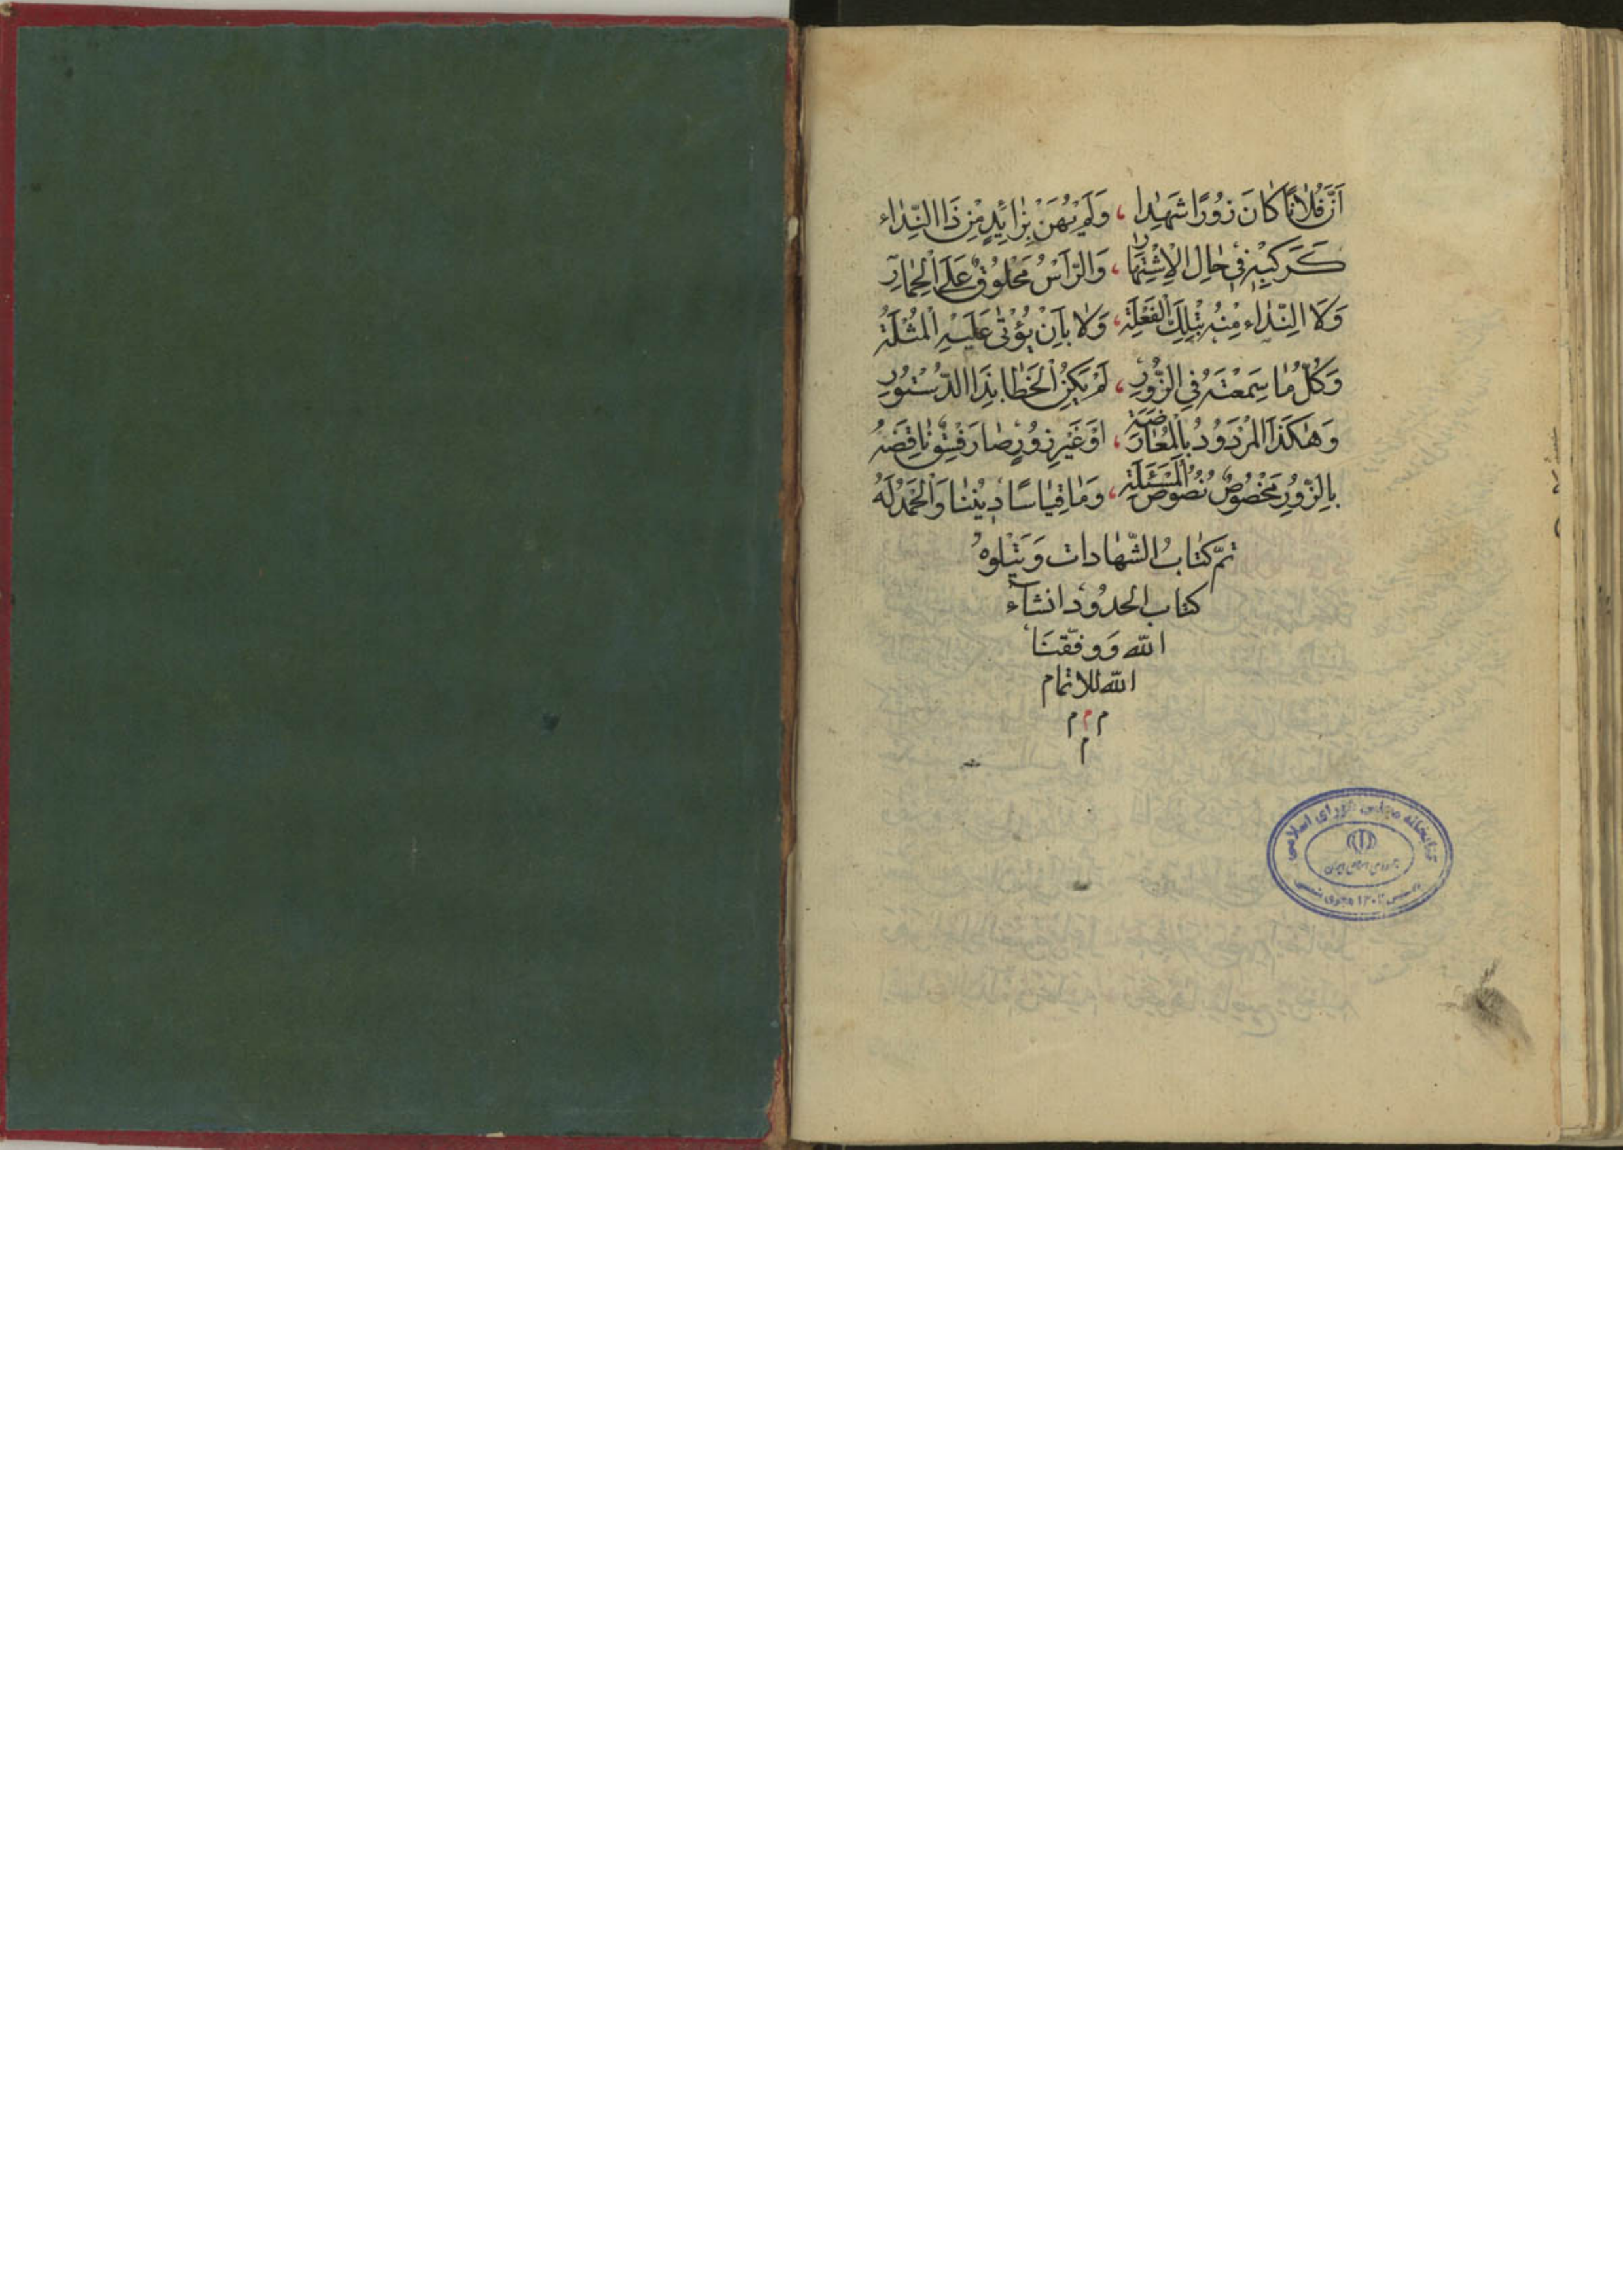 اَنَّ فُلَانًا كَانَ زُورًا شَهِدَا ، وَلَمْ يُهَنْ بِزَائِدٍ مِنْ ذَا النِّدَاء
كَرَكْبِهِ فِي حَالِ الْاِشْتِهَارِ ، وَالرَّأْسُ مَحْلُوقٌ عَلَى الْحِمَارِ
وَلَا النِّدَاء مِنْهُ بِتِلْكَ الْفَعْلَةِ ، وَلَا بِاَنْ يُؤْتٰى عَلَيْهِ الْمُثْلَةُ
وَكُلُّ مَا سَمِعْتَهُ فِي الزُّورِ ، لَمْ يَكُنِ الْخَطَا بِذَا الدُّسْتُورِ
وَهٰكَذَا الْمَرْدُودُ بِالْمُعَارَضَةِ ، اَوْ غَيْرِ زُورٍ صَارَ فِسْقٌ نَاقِضَهُ
بِالزُّورِ مَخْصُوصٌ نُصُوصُ الْمَسْئَلَةِ ، وَمَا قِيَاسًا دِيْنُنَا وَالْحَمْدُ لَهُ
تمّ كتابُ الشّهادات وَيَتْلوهُ
كتاب الحدود انشآء
الله وَوفّقنَا
الله للاتمام
م م م
م
کتابخانه مجلس شورای اسلامی
جمهوری اسلامی ایران